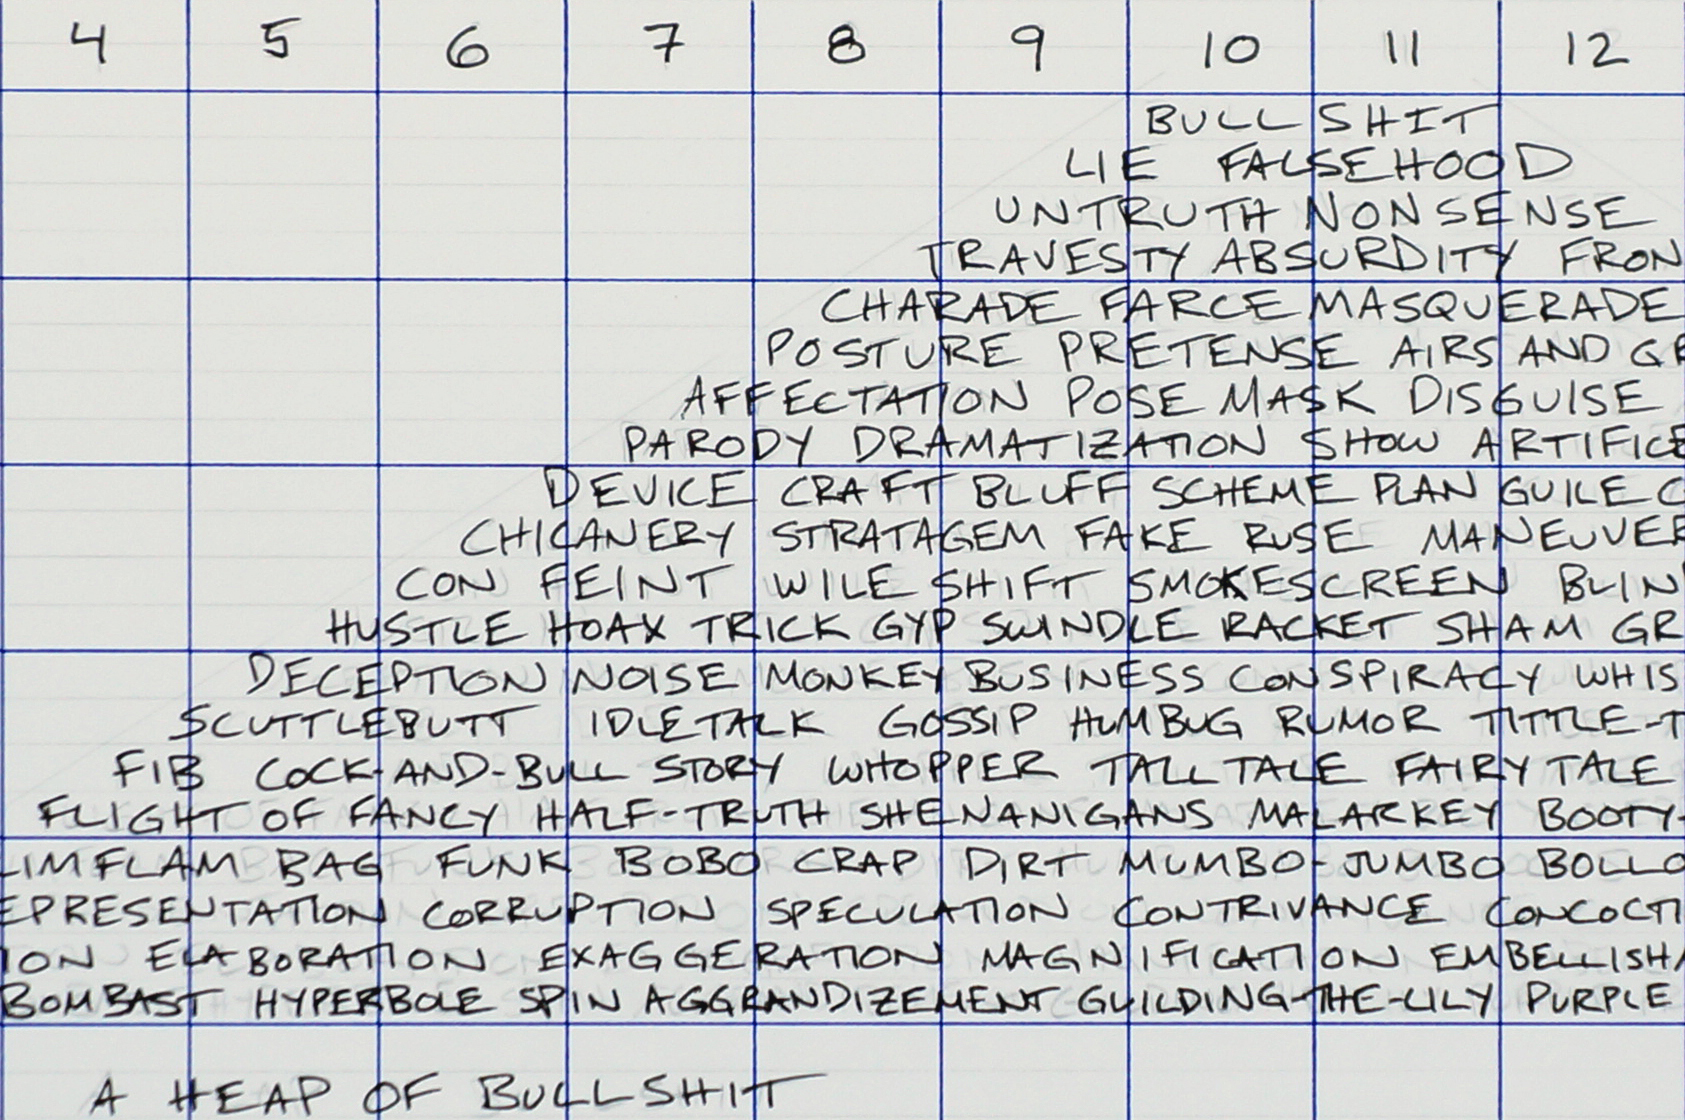 4 5 6 7 8 9 10 11 12
BULLSHIT
LIE FALSEHOOD
UNTRUTH NONSENSE
TRAVESTY ABSURDITY FRON
CHARADE FARCE MASQUERADE
POSTURE PRETENSE AIRS AND GR
AFFECTATION POSE MASK DISGUISE
PARODY DRAMATIZATION SHOW ARTIFICE
DEVICE CRAFT BLUFF SCHEME PLAN GUILE C
CHICANERY STRATAGEM FAKE RUSE MANEUVER
CON FEINT WILE SHIFT SMOKESCREEN BLIN
HUSTLE HOAX TRICK GYP SWINDLE RACKET SHAM GR
DECEPTION NOISE MONKEY BUSINESS CONSPIRACY WHIS
SCUTTLEBUTT IDLE TALK GOSSIP HUMBUG RUMOR TITTLE-T
FIB COCK-AND-BULL STORY WHOPPER TALL TALE FAIRY TALE
FLIGHT OF FANCY HALF-TRUTH SHENANIGANS MALARKEY BOOTY-
LIMFLAM BAG FUNK BOBO CRAP DIRT MUMBO-JUMBO BOLLO
EPRESENTATION CORRUPTION SPECULATION CONTRIVANCE CONCOCTI
ION ELABORATION EXAGGERATION MAGNIFICATION EMBELLISH
BOMBAST HYPERBOLE SPIN AGGRANDIZEMENT GUILDING-THE-LILY PURPLE
A HEAP OF BULLSHIT